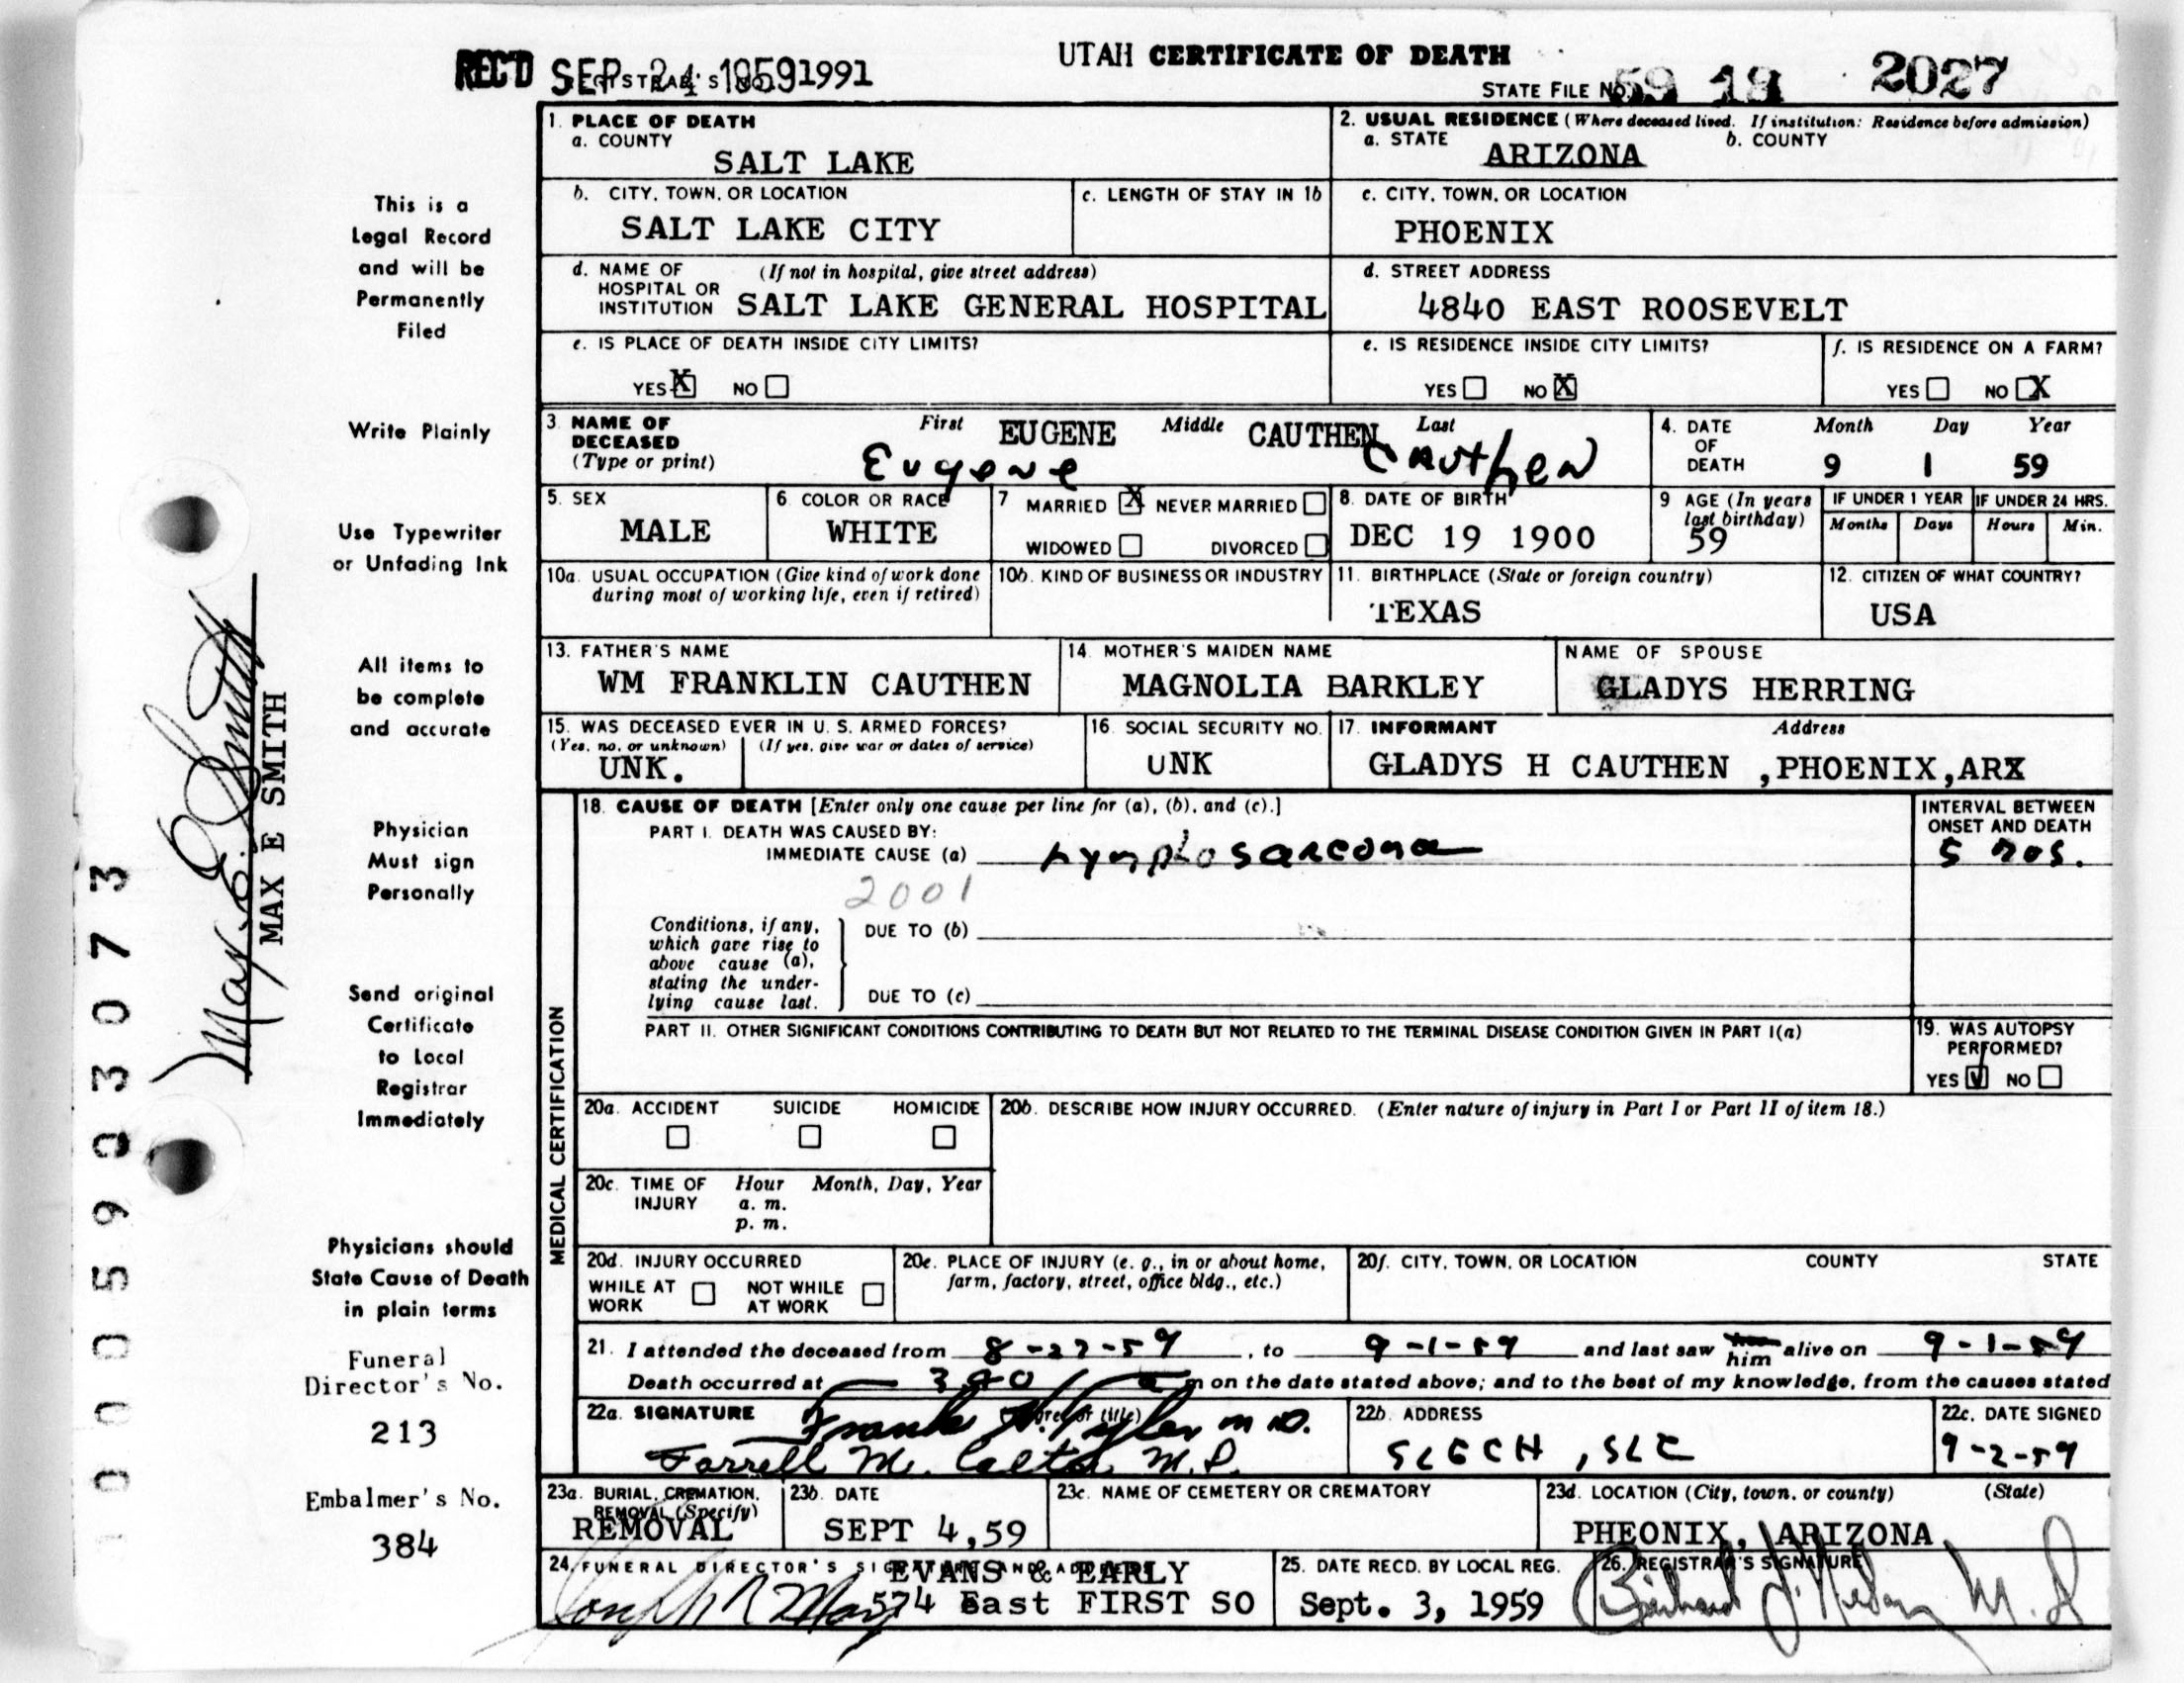 UTAH CERTIFICATE OF DEATH
REC'D SEP 24 1959 1991
STATE FILE NO. 59 18 2027
1. PLACE OF DEATH
a. COUNTY
SALT LAKE
2. USUAL RESIDENCE (Where deceased lived. If institution: Residence before admission)
a. STATE ARIZONA b. COUNTY
b. CITY, TOWN, OR LOCATION
SALT LAKE CITY
c. LENGTH OF STAY IN 1b
c. CITY, TOWN, OR LOCATION
PHOENIX
d. NAME OF (If not in hospital, give street address)
HOSPITAL OR
INSTITUTION SALT LAKE GENERAL HOSPITAL
d. STREET ADDRESS
4840 EAST ROOSEVELT
e. IS PLACE OF DEATH INSIDE CITY LIMITS?
YES X NO
e. IS RESIDENCE INSIDE CITY LIMITS?
YES NO X
f. IS RESIDENCE ON A FARM?
YES NO X
3 NAME OF DECEASED
(Type or print)
First EUGENE Middle CAUTHEN Last
Eugene Cauthen
4. DATE OF DEATH
Month Day Year
9 1 59
5. SEX
MALE
6. COLOR OR RACE
WHITE
7 MARRIED X NEVER MARRIED
WIDOWED DIVORCED
8. DATE OF BIRTH
DEC 19 1900
9 AGE (In years last birthday)
59
IF UNDER 1 YEAR
Months Days
IF UNDER 24 HRS.
Hours Min.
10a. USUAL OCCUPATION (Give kind of work done
during most of working life, even if retired)
10b. KIND OF BUSINESS OR INDUSTRY
11. BIRTHPLACE (State or foreign country)
TEXAS
12. CITIZEN OF WHAT COUNTRY?
USA
13. FATHER'S NAME
WM FRANKLIN CAUTHEN
14. MOTHER'S MAIDEN NAME
MAGNOLIA BARKLEY
NAME OF SPOUSE
GLADYS HERRING
15. WAS DECEASED EVER IN U. S. ARMED FORCES?
(Yes, no, or unknown) (If yes, give war or dates of service)
UNK.
16. SOCIAL SECURITY NO.
UNK
17. INFORMANT Address
GLADYS H CAUTHEN ,PHOENIX,ARX
MEDICAL CERTIFICATION
18. CAUSE OF DEATH [Enter only one cause per line for (a), (b), and (c).]
PART I. DEATH WAS CAUSED BY:
IMMEDIATE CAUSE (a) Lymphosarcoma
2001
INTERVAL BETWEEN
ONSET AND DEATH
5 mos.
Conditions, if any,
which gave rise to
above cause (a),
stating the under-
lying cause last.
DUE TO (b)
DUE TO (c)
PART II. OTHER SIGNIFICANT CONDITIONS CONTRIBUTING TO DEATH BUT NOT RELATED TO THE TERMINAL DISEASE CONDITION GIVEN IN PART I(a)
19. WAS AUTOPSY
PERFORMED?
YES NO
20a. ACCIDENT SUICIDE HOMICIDE
20b. DESCRIBE HOW INJURY OCCURRED. (Enter nature of injury in Part I or Part II of item 18.)
20c. TIME OF INJURY
Hour Month, Day, Year
a. m.
p. m.
20d. INJURY OCCURRED
WHILE AT WORK NOT WHILE AT WORK
20e. PLACE OF INJURY (e. g., in or about home,
farm, factory, street, office bldg., etc.)
20f. CITY, TOWN, OR LOCATION COUNTY STATE
21. I attended the deceased from 8-27-59, to 9-1-59 and last saw him alive on 9-1-59
Death occurred at m on the date stated above; and to the best of my knowledge, from the causes stated
22a. SIGNATURE (Degree or title)
Frank H. Tyler M.D.
Farrell M. M.D.
22b. ADDRESS
SLGCH, SLC
22c. DATE SIGNED
9-2-59
23a. BURIAL, CREMATION,
REMOVAL (Specify)
REMOVAL
23b. DATE
SEPT 4,59
23c. NAME OF CEMETERY OR CREMATORY
23d. LOCATION (City, town, or county) (State)
PHEONIX, ARIZONA
24. FUNERAL DIRECTOR'S SIGNATURE AND ADDRESS
EVANS & EARLY
574 East FIRST SO
25. DATE RECD. BY LOCAL REG.
Sept. 3, 1959
26. REGISTRAR'S SIGNATURE
M.D
This is a
Legal Record
and will be
Permanently
Filed
Write Plainly
Use Typewriter
or Unfading Ink
All items to
be complete
and accurate
Physician
Must sign
Personally
Send original
Certificate
to Local
Registrar
Immediately
Physicians should
State Cause of Death
in plain terms
Funeral
Director's No.
213
Embalmer's No.
384
Max E. Smith
MAX E SMITH
0005993073